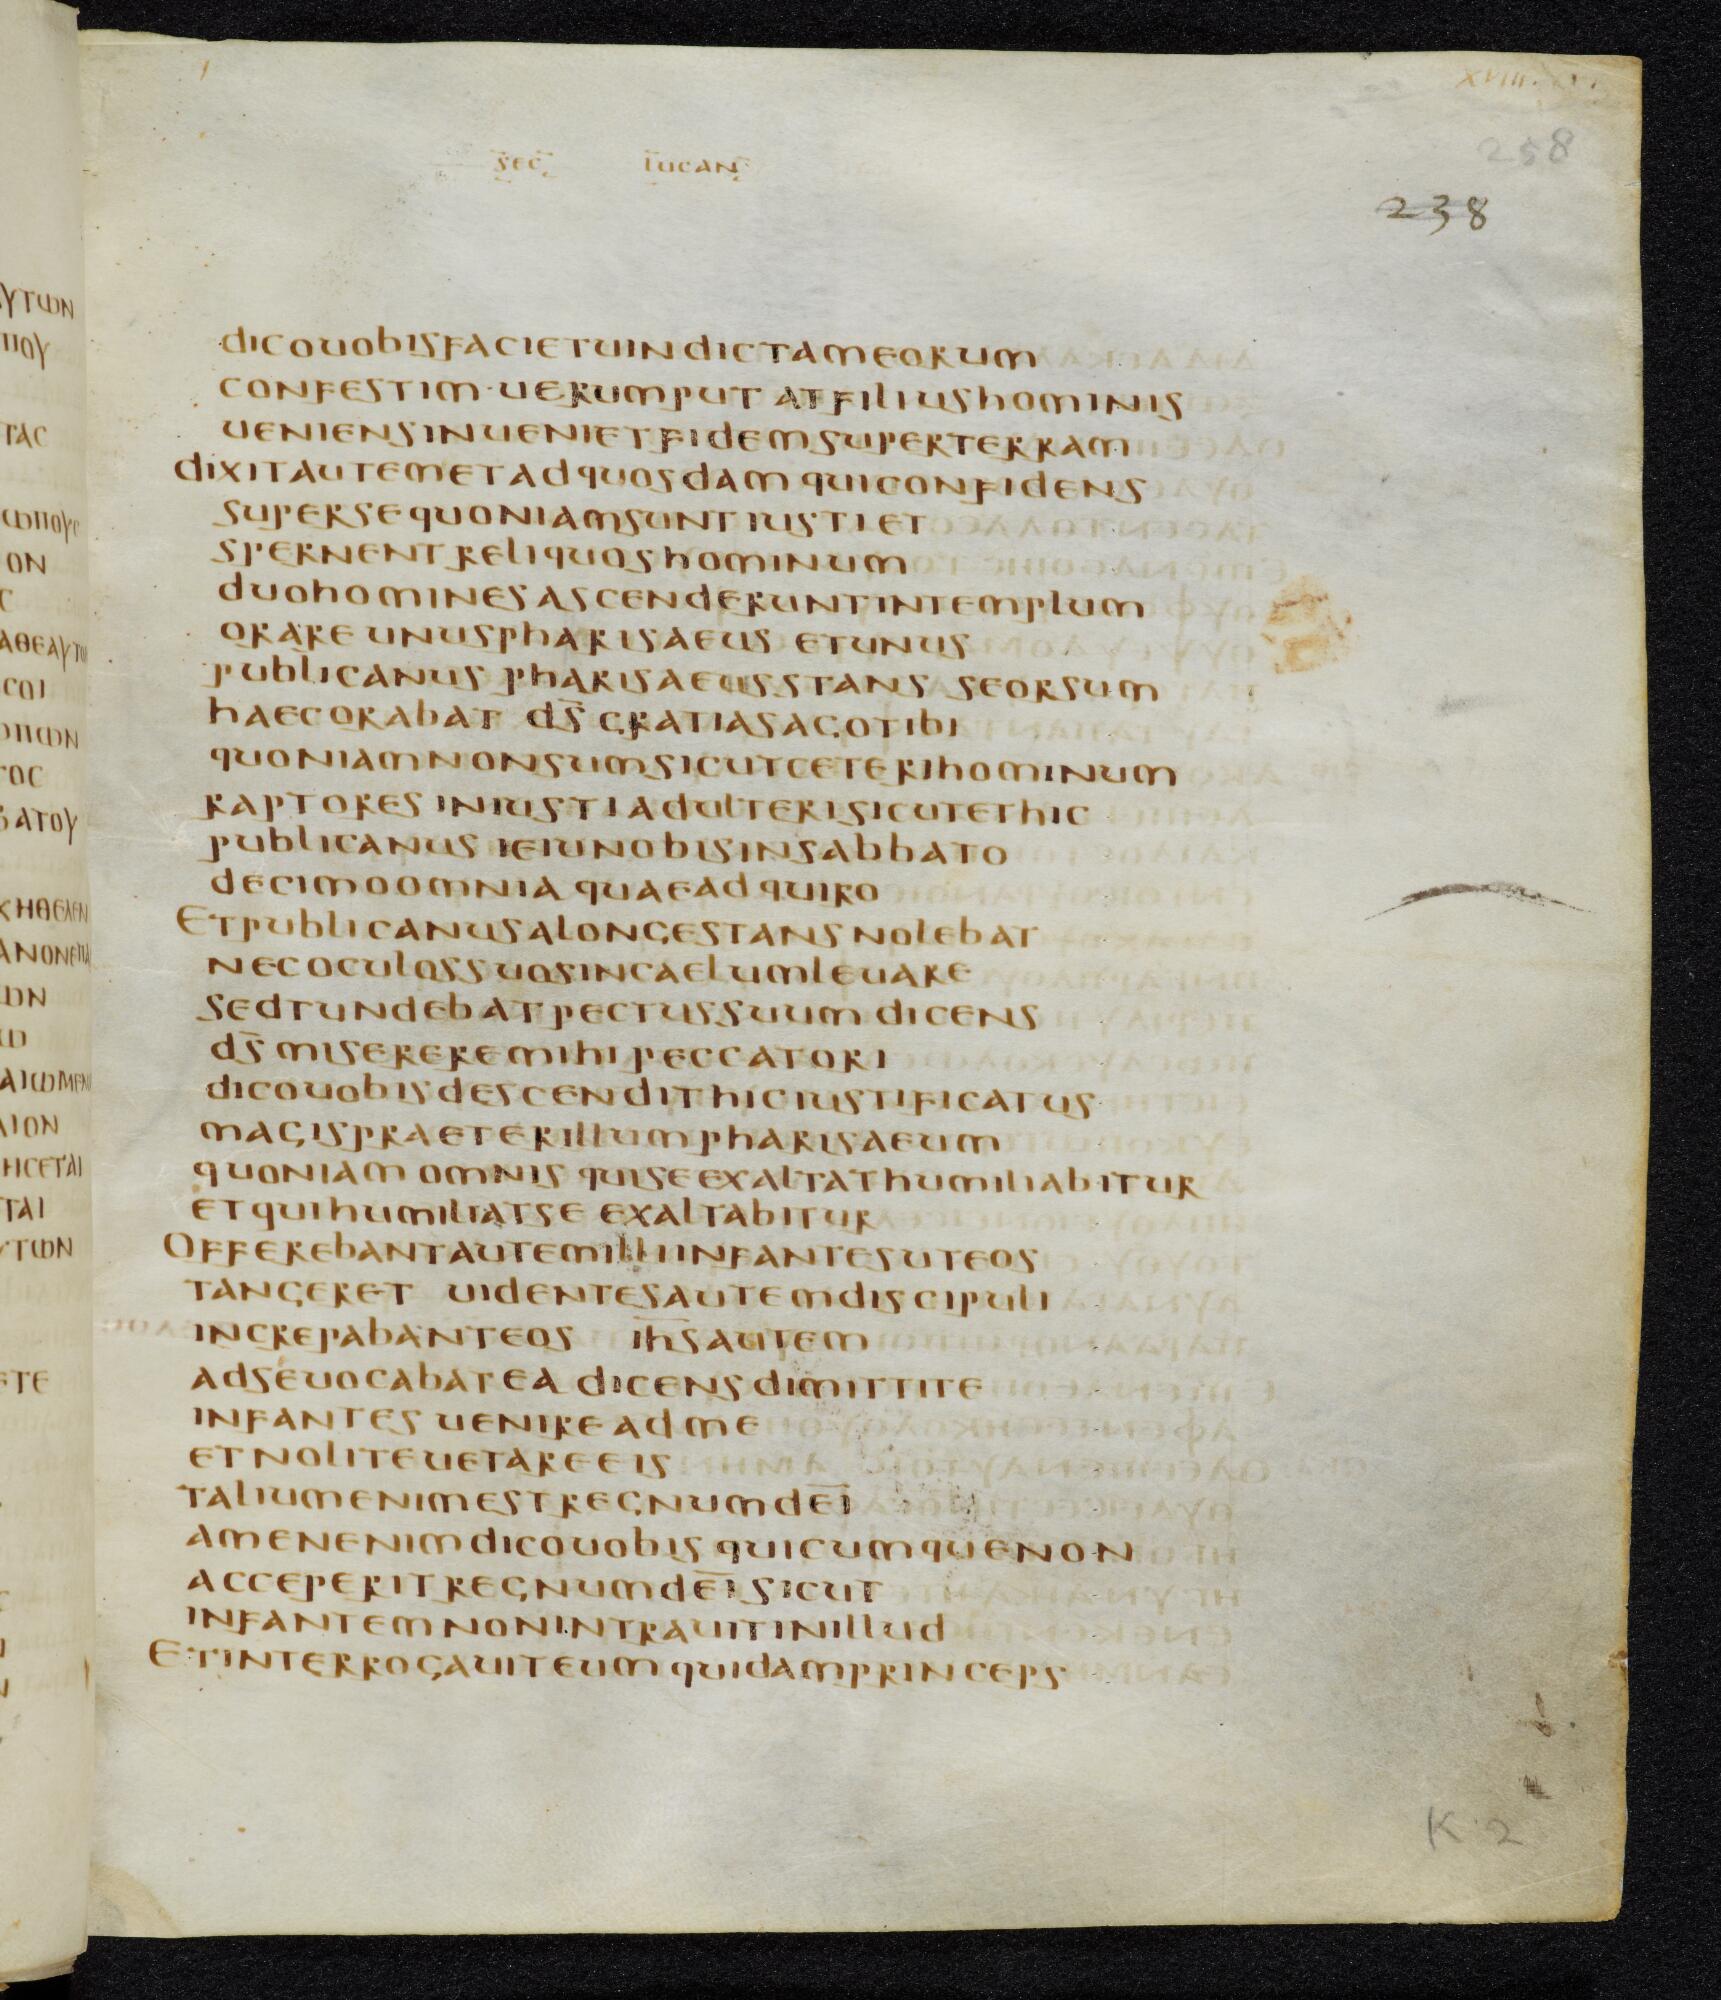 XVIII
258
sec lucan
238
dicouobisfacietuindictameorum
confestim·uerumputatfiliushominis
ueniensinuenietfidemsuperterram
dixitautemetadquosdamquiconfidens
supersequoniamsuntiustiet
spernentreliquoshominum
duohominesascenderuntintemplum
orareunuspharisaeus etunus
publicanus pharisaeusstans seorsum
haecorabat ds̄ gratiasagotibi
quoniamnonsumsicutceterihominum
raptores iniustiadulterisicutethic
publicanus ieiunobisinsabbato
decimoomniaquaeadquiro
Etpublicanusalongestansnolebat
necoculossuosincaelumleuare
sedtundebatpectussuumdicens
ds̄ misereremihipeccatori
dicouobisdescendithiciustificatus
magispraeterillumpharisaeum
quoniamomnis quiseexaltathumiliabitur
etquihumiliatse exaltabitur
Offerebantautemilliinfantesuteos
tangeret uidentesautemdiscipuli
increpabanteos ih̄sautem
adseuocabatea dicensdimittite
infantes uenireadme
etnoliteuetareeis
taliumenimestregnumdēī
amenenimdicouobis quicumquenon
acceperitregnumdēīsicut
infantemnonintrauitinillud
Etinterrogauiteumquidamprinceps
K·2